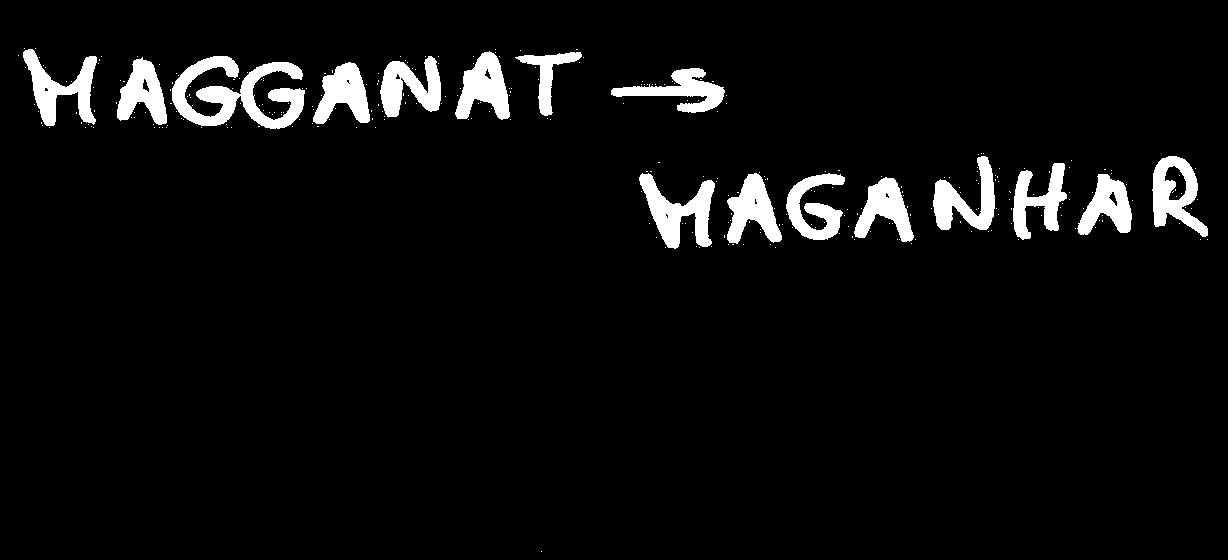 MAGGANAT →
MAGANHAR